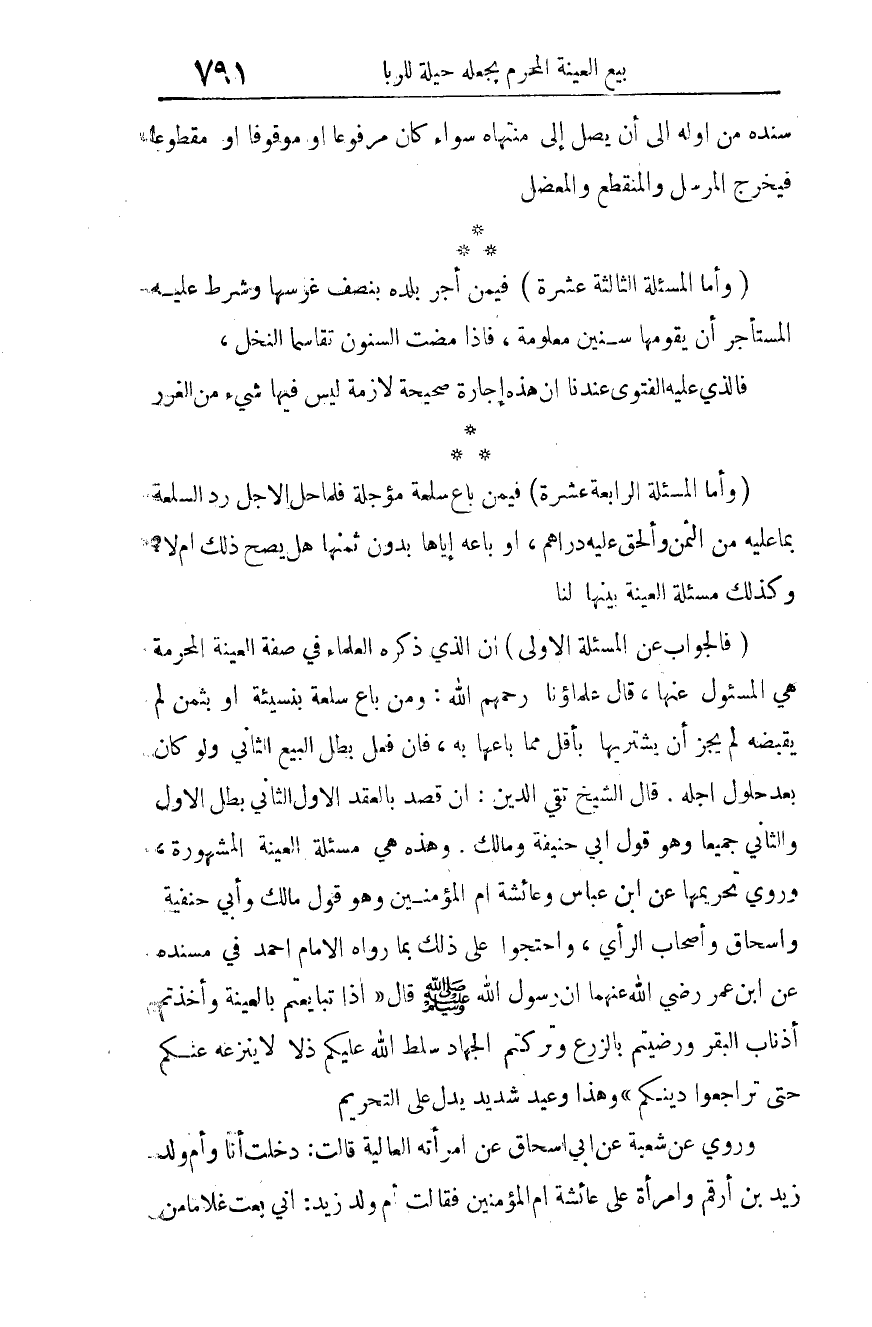 بيع العينة المحرم بجعله حيلة للربا ٧٩١
سنده من اوله الى أن يصل إلى منتهاه سواء كان مرفوعا او موقوفا او مقطوعا
فيخرج المرسل والمنقطع والمعضل
*
* *
( وأما المسئلة الثالثة عشرة ) فيمن أجر بلده بنصف غرسها وشرط عليه
المستأجر أن يقومها سنين معلومة ، فاذا مضت السنون تقاسما النخل ،
فالذي عليه الفتوى عندنا ان هذه إجارة صحيحة لازمة ليس فيها شيء من الغرر
*
* *
( وأما المسئلة الرابعة عشرة) فيمن باع سلعة مؤجلة فلما حل الاجل رد السلعة
بما عليه من الثمن وألحق عليه دراهم ، او باعه إياها بدون ثمنها هل يصح ذلك ام لا؟
وكذلك مسئلة العينة بينها لنا
( فالجواب عن المسئلة الاولى ) ان الذي ذكره العلماء في صفة العينة المحرمة
هي المسئول عنها ، قال علماؤنا رحمهم الله : ومن باع سلعة بنسيئة او بثمن لم
يقبضه لم يجز أن يشتريها بأقل مما باعها به ، فان فعل بطل البيع الثاني ولو كان
بعد حلول اجله . قال الشيخ تقي الدين : ان قصد بالعقد الاول الثاني بطل الاول
والثاني جميعا وهو قول ابي حنيفة ومالك . وهذه هي مسئلة العينة المشهورة ،
وروي تحريمها عن ابن عباس وعائشة ام المؤمنين وهو قول مالك وأبي حنفية
واسحاق وأصحاب الرأي ، واحتجوا على ذلك بما رواه الامام احمد في مسنده
عن ابن عمر رضي الله عنهما ان رسول الله ﷺ قال « اذا تبايعتم بالعينة وأخذتم
أذناب البقر ورضيتم بالزرع وتركتم الجهاد سلط الله عليكم ذلا لا ينزعه عنكم
حتى تراجعوا دينكم » وهذا وعيد شديد يدل على التحريم
وروي عن شعبة عن ابي اسحاق عن امرأته العالية قالت: دخلت أنا وأم ولد
زيد بن أرقم وامرأة على عائشة ام المؤمنين فقالت أم ولد زيد: اني بعت غلاما من